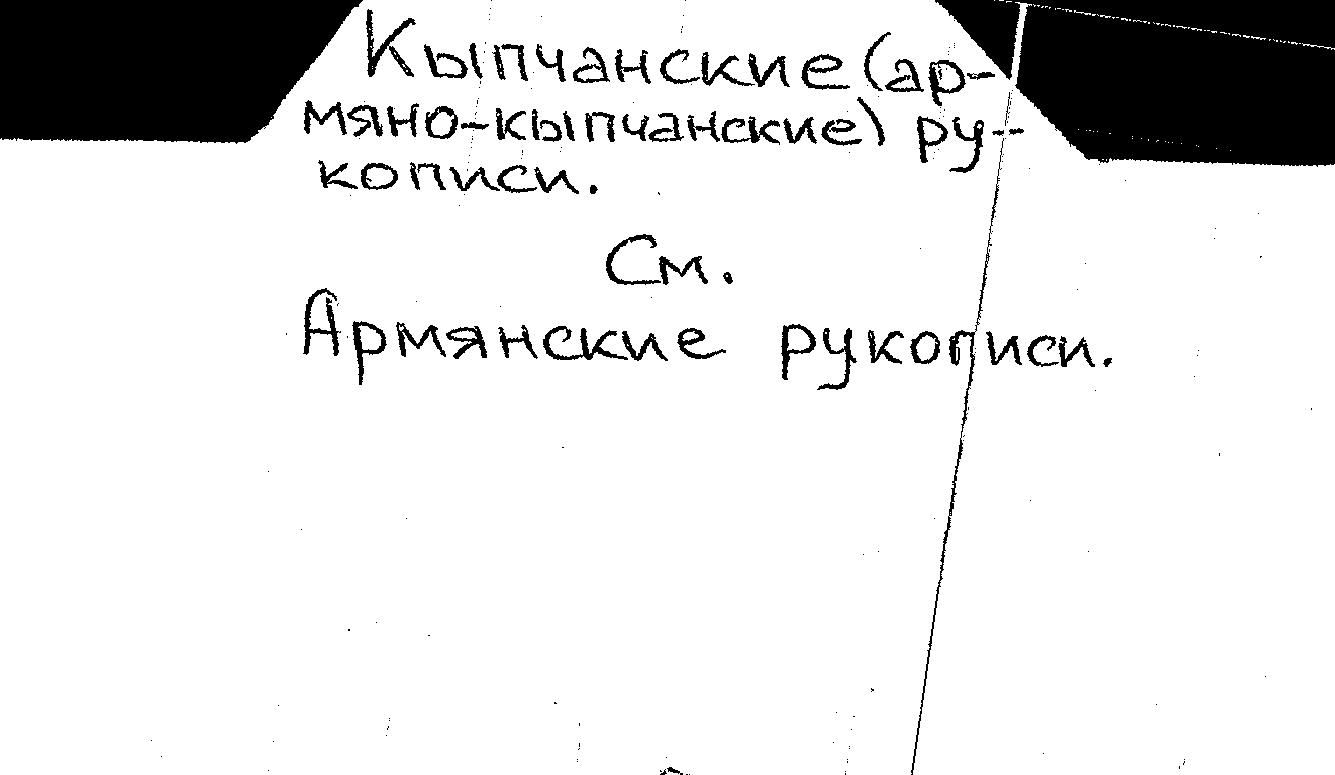 Кыпчанские (ар-
мяно-кыпчанские) ру-
кописи.
См.
Армянские рукописи.